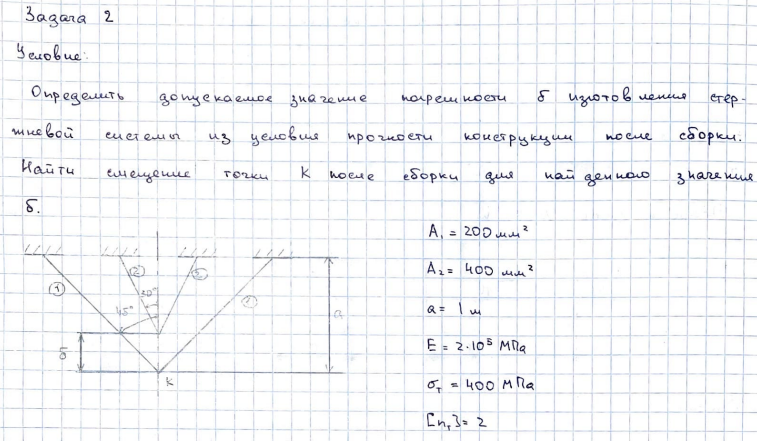 Задача 2
Условие:
Определить допускаемое значение погрешности δ изготовления стер-
жневой системы из условия прочности конструкции после сборки.
Найти смещение точки К после сборки для найденного значения
δ.
A₁ = 200 мм²
② ②
A₂ = 400 мм²
① 30° ①
45° a
a = 1 м
E = 2·10⁵ МПа
δ
К
σт = 400 МПа
[nт] = 2